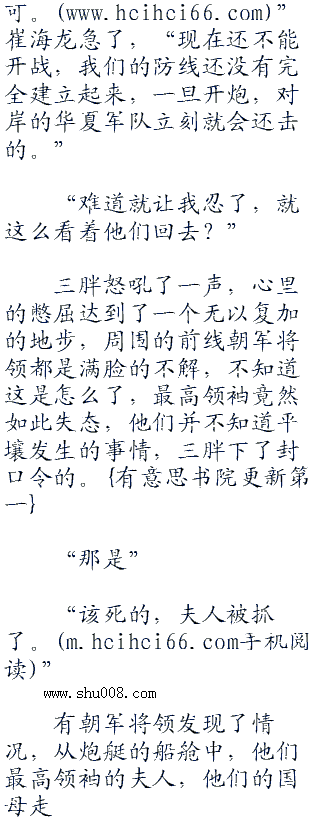 可。(www.hcihci66.com)”
崔海龙急了，“现在还不能
开战，我们的防线还没有完
全建立起来，一旦开炮，对
岸的华夏军队立刻就会还击
的。”
“难道就让我忍了，就
这么看着他们回去？”
三胖怒吼了一声，心里
的憋屈达到了一个无以复加
的地步，周围的前线朝军将
领都是满脸的不解，不知道
这是怎么了，最高领袖竟然
如此失态，他们并不知道平
壤发生的事情，三胖下了封
口令的。{有意思书院更新第
一}
“那是”
“该死的，夫人被抓
了。(m.hcihci66.com手机阅
读)”
www.shu008.com
有朝军将领发现了情
况，从炮艇的船舱中，他们
最高领袖的夫人，他们的国
母走